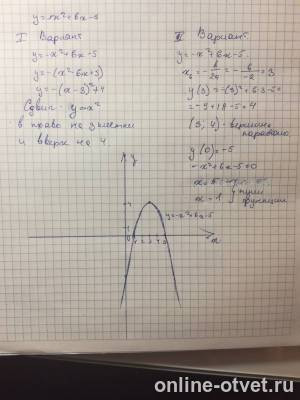 y=-x²+6x-5
I Вариант
y=-x²+6x-5
y=-(x²-6x+5)
y=-(x-3)²+4
Сдвиг y=-x²
вправо на 3 клетки
и вверх на 4.
II Вариант.
y=-x²+6x-5.
x₀=-b/2a=-6/-2=3
y(3)=-(3)²+6·3-5=
=-9+18-5=4
(3; 4)-вершина
параболы
y(0)=-5
-x²+6x-5=0
x=5
x=1
нули
функции
y
y=-x²+6x-5
x
online-otvet.ru